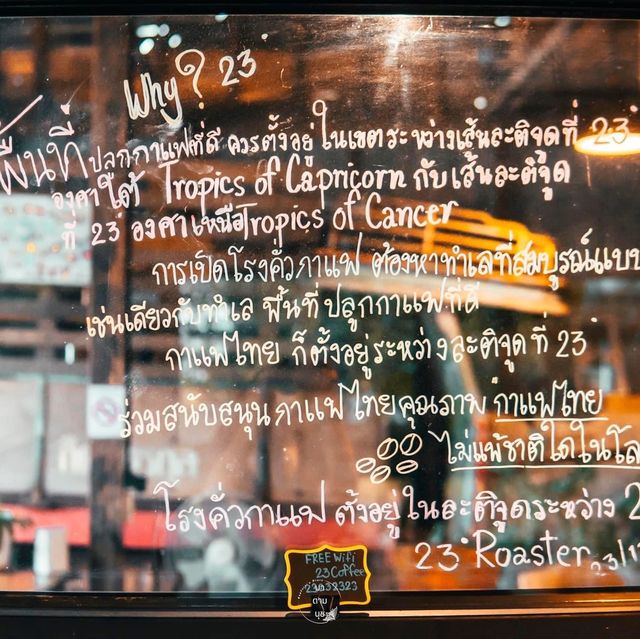 Why? 23°
พื้นที่ปลูกกาแฟที่ดี ควรตั้งอยู่ ในเขตระหว่างเส้นละติจูดที่ 23°
องศาใต้ Tropics of Capricorn กับเส้นละติจูด
ที่ 23 องศาเหนือTropics of Cancer
การเปิดโรงคั่วกาแฟ ต้องหาทำเลที่สมบูรณ์แบบ
เช่นเดียวกับทำเล พื้นที่ปลูกกาแฟที่ดี
กาแฟไทย ก็ตั้งอยู่ระหว่างละติจูดที่ 23°
ร่วมสนับสนุนกาแฟไทยคุณภาพ กาแฟไทย
ไม่แพ้ชาติใดในโล
โรงคั่วกาแฟ ตั้งอยู่ในละติจูดระหว่าง 2
23° Roaster
FREE Wifi
23 Coffee
ตาม